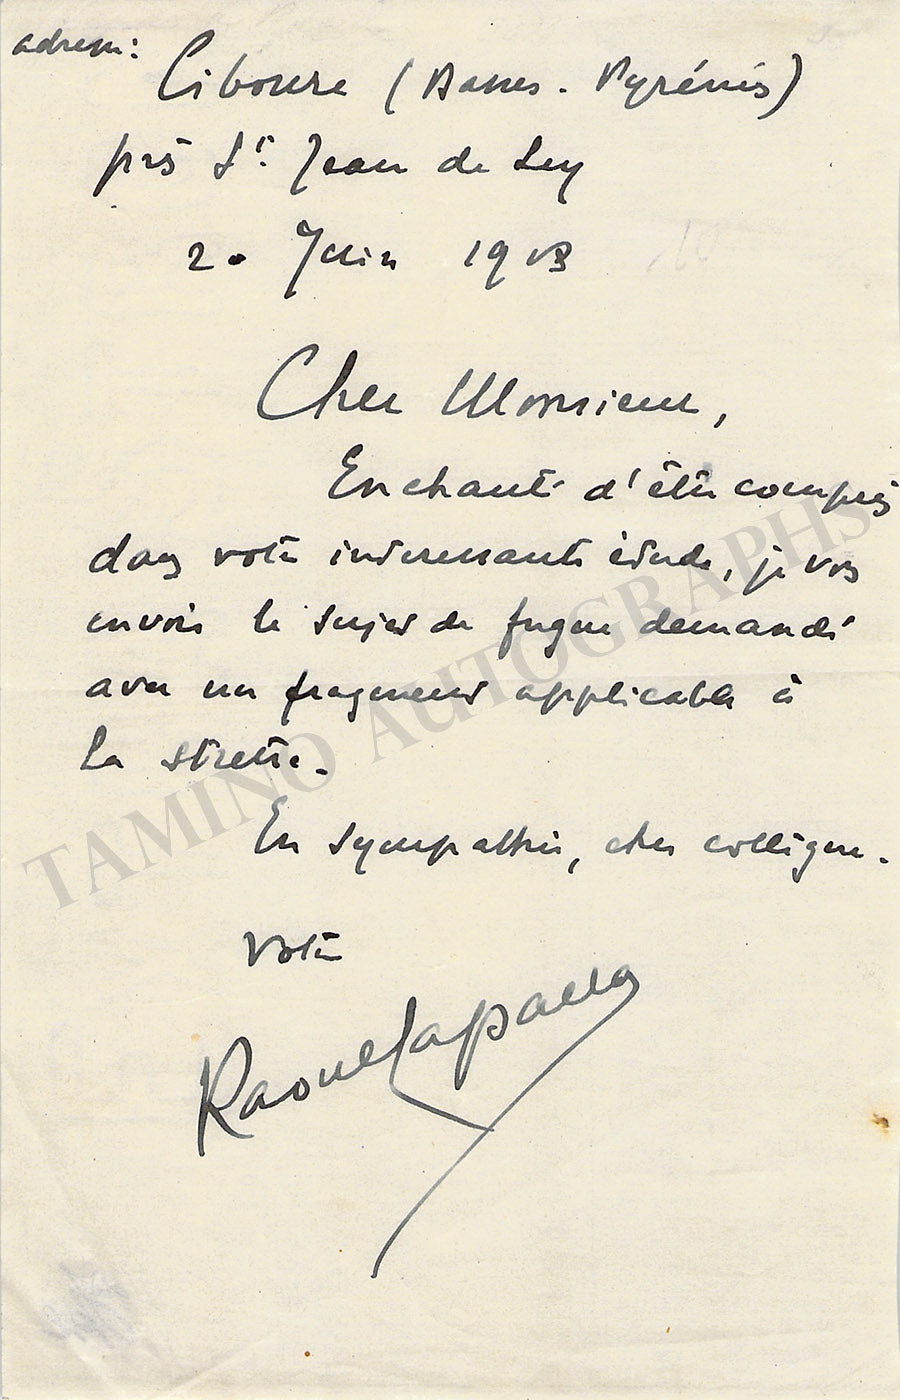 adresse:
Ciboure (Basses-Pyrénées)
près St. Jean de Luz
20 Juin 1903
Cher Monsieur,
Enchanté d'être compris
dans votre intéressante étude, je vous
envoie le sujet de fugue demandé
avec un fragment applicable à
la strette.
En sympathie, cher collègue.
Votre
Raoul Laparra
TAMINO AUTOGRAPHS